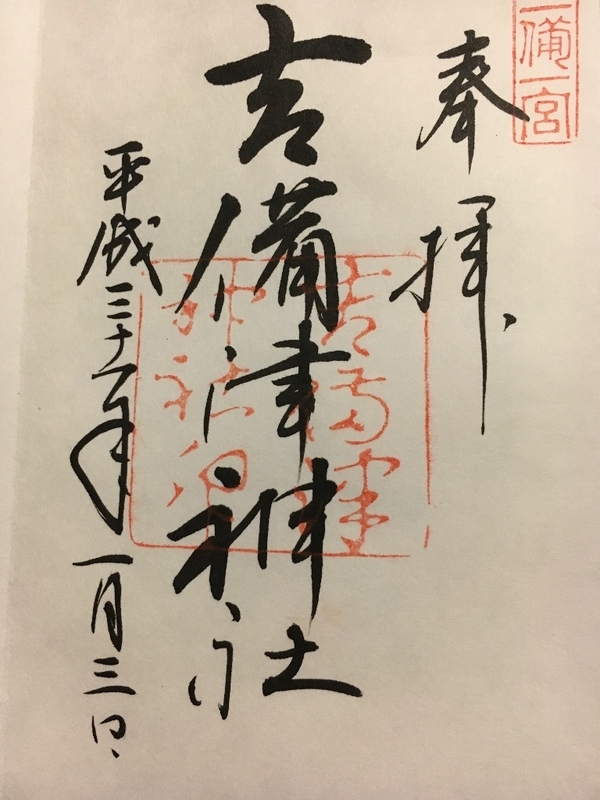 備一宮
奉拝
吉備津神社
吉備津
神社印
平成三十一年
一月三日